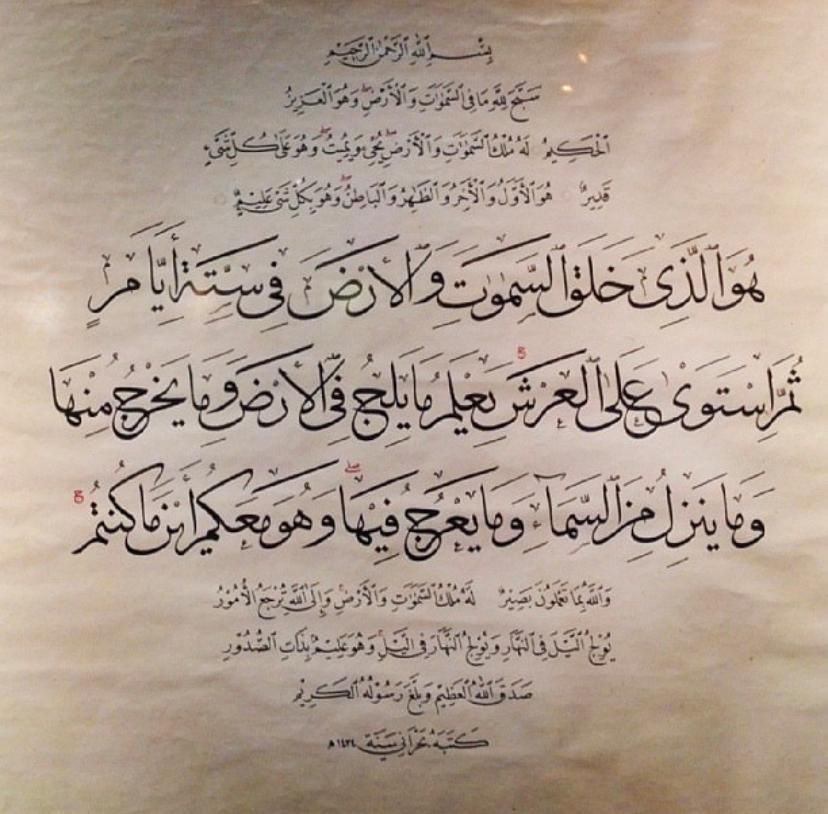 بِسْمِ اللَّهِ الرَّحْمَٰنِ الرَّحِيمِ
سَبَّحَ لِلَّهِ مَا فِي السَّمَٰوَٰتِ وَالْأَرْضِ ۖ وَهُوَ الْعَزِيزُ
الْحَكِيمُ لَهُ مُلْكُ السَّمَٰوَٰتِ وَالْأَرْضِ ۖ يُحْيِ وَيُمِيتُ ۖ وَهُوَ عَلَىٰ كُلِّ شَيْءٍ
قَدِيرٌ هُوَ الْأَوَّلُ وَالْآخِرُ وَالظَّاهِرُ وَالْبَاطِنُ ۖ وَهُوَ بِكُلِّ شَيْءٍ عَلِيمٌ
هُوَ الَّذِي خَلَقَ السَّمَٰوَٰتِ وَالْأَرْضَ فِي سِتَّةِ أَيَّامٍ
ثُمَّ اسْتَوَىٰ عَلَى الْعَرْشِ ۚ يَعْلَمُ مَا يَلِجُ فِي الْأَرْضِ وَمَا يَخْرُجُ مِنْهَا
وَمَا يَنْزِلُ مِنَ السَّمَاءِ وَمَا يَعْرُجُ فِيهَا ۖ وَهُوَ مَعَكُمْ أَيْنَ مَا كُنْتُمْ ۚ
وَاللَّهُ بِمَا تَعْمَلُونَ بَصِيرٌ لَهُ مُلْكُ السَّمَٰوَٰتِ وَالْأَرْضِ ۚ وَإِلَى اللَّهِ تُرْجَعُ الْأُمُورُ
يُولِجُ الَّيْلَ فِي النَّهَارِ وَيُولِجُ النَّهَارَ فِي الَّيْلِ ۚ وَهُوَ عَلِيمٌ بِذَاتِ الصُّدُورِ
صَدَقَ اللَّهُ الْعَظِيمُ وَبَلَّغَ رَسُولُهُ الْكَرِيمُ
كَتَبَهُ